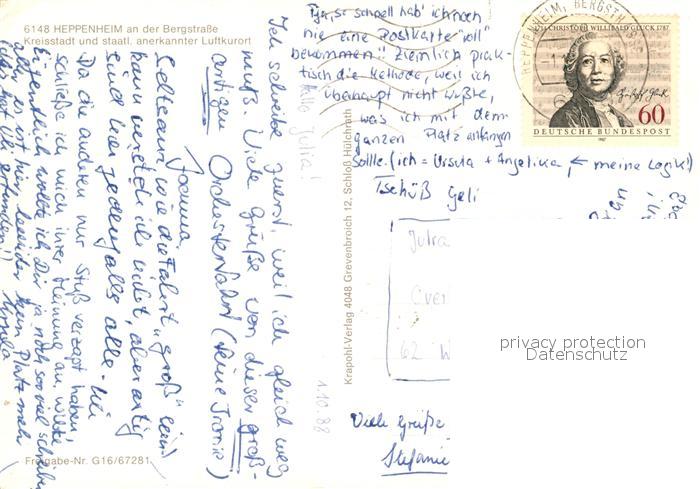 6148 HEPPENHEIM an der Bergstraße
Kreisstadt und staatl. anerkannter Luftkurort
Hallo Julia!
Ich schreibe zuerst, weil ich gleich weg
muß. Viele Grüße von dieser groß-
artigen Orchesterfahrt (keine Ironie)
Joanna.
Seltsam, wie die Fahrt "groß" sein
kann versteh ich nicht, aber artig
sind wir jedenfalls alle.
Da die anderen nur Stuß verzapft haben,
schließe ich mich ihrer Meinung an.
Eigentlich wollte ich Dir ja noch soo viel schreiben
aber es ist hier leider kein Platz mehr
Ursula
Freigabe-Nr. G16/67281
Krapohl-Verlag 4048 Grevenbroich 12, Schloß Hülchrath
1.10.88
Tja, so schnell hab' ich noch
nie eine Postkarte "voll"
bekommen!! Ziemlich prak-
tisch die Methode, weil ich
überhaupt nicht wußte,
was ich mit dem
ganzen Platz anfangen
sollte. (ich = Ursula + Angelika, ← meine Logik!)
Tschüß Geli
HEPPENHEIM, BERGSTR
CHRISTOPH WILLIBALD GLUCK 1787
60
DEUTSCHE BUNDESPOST
1987
62 W
Viele Grüße
Stefanie
privacy protection
Datenschutz